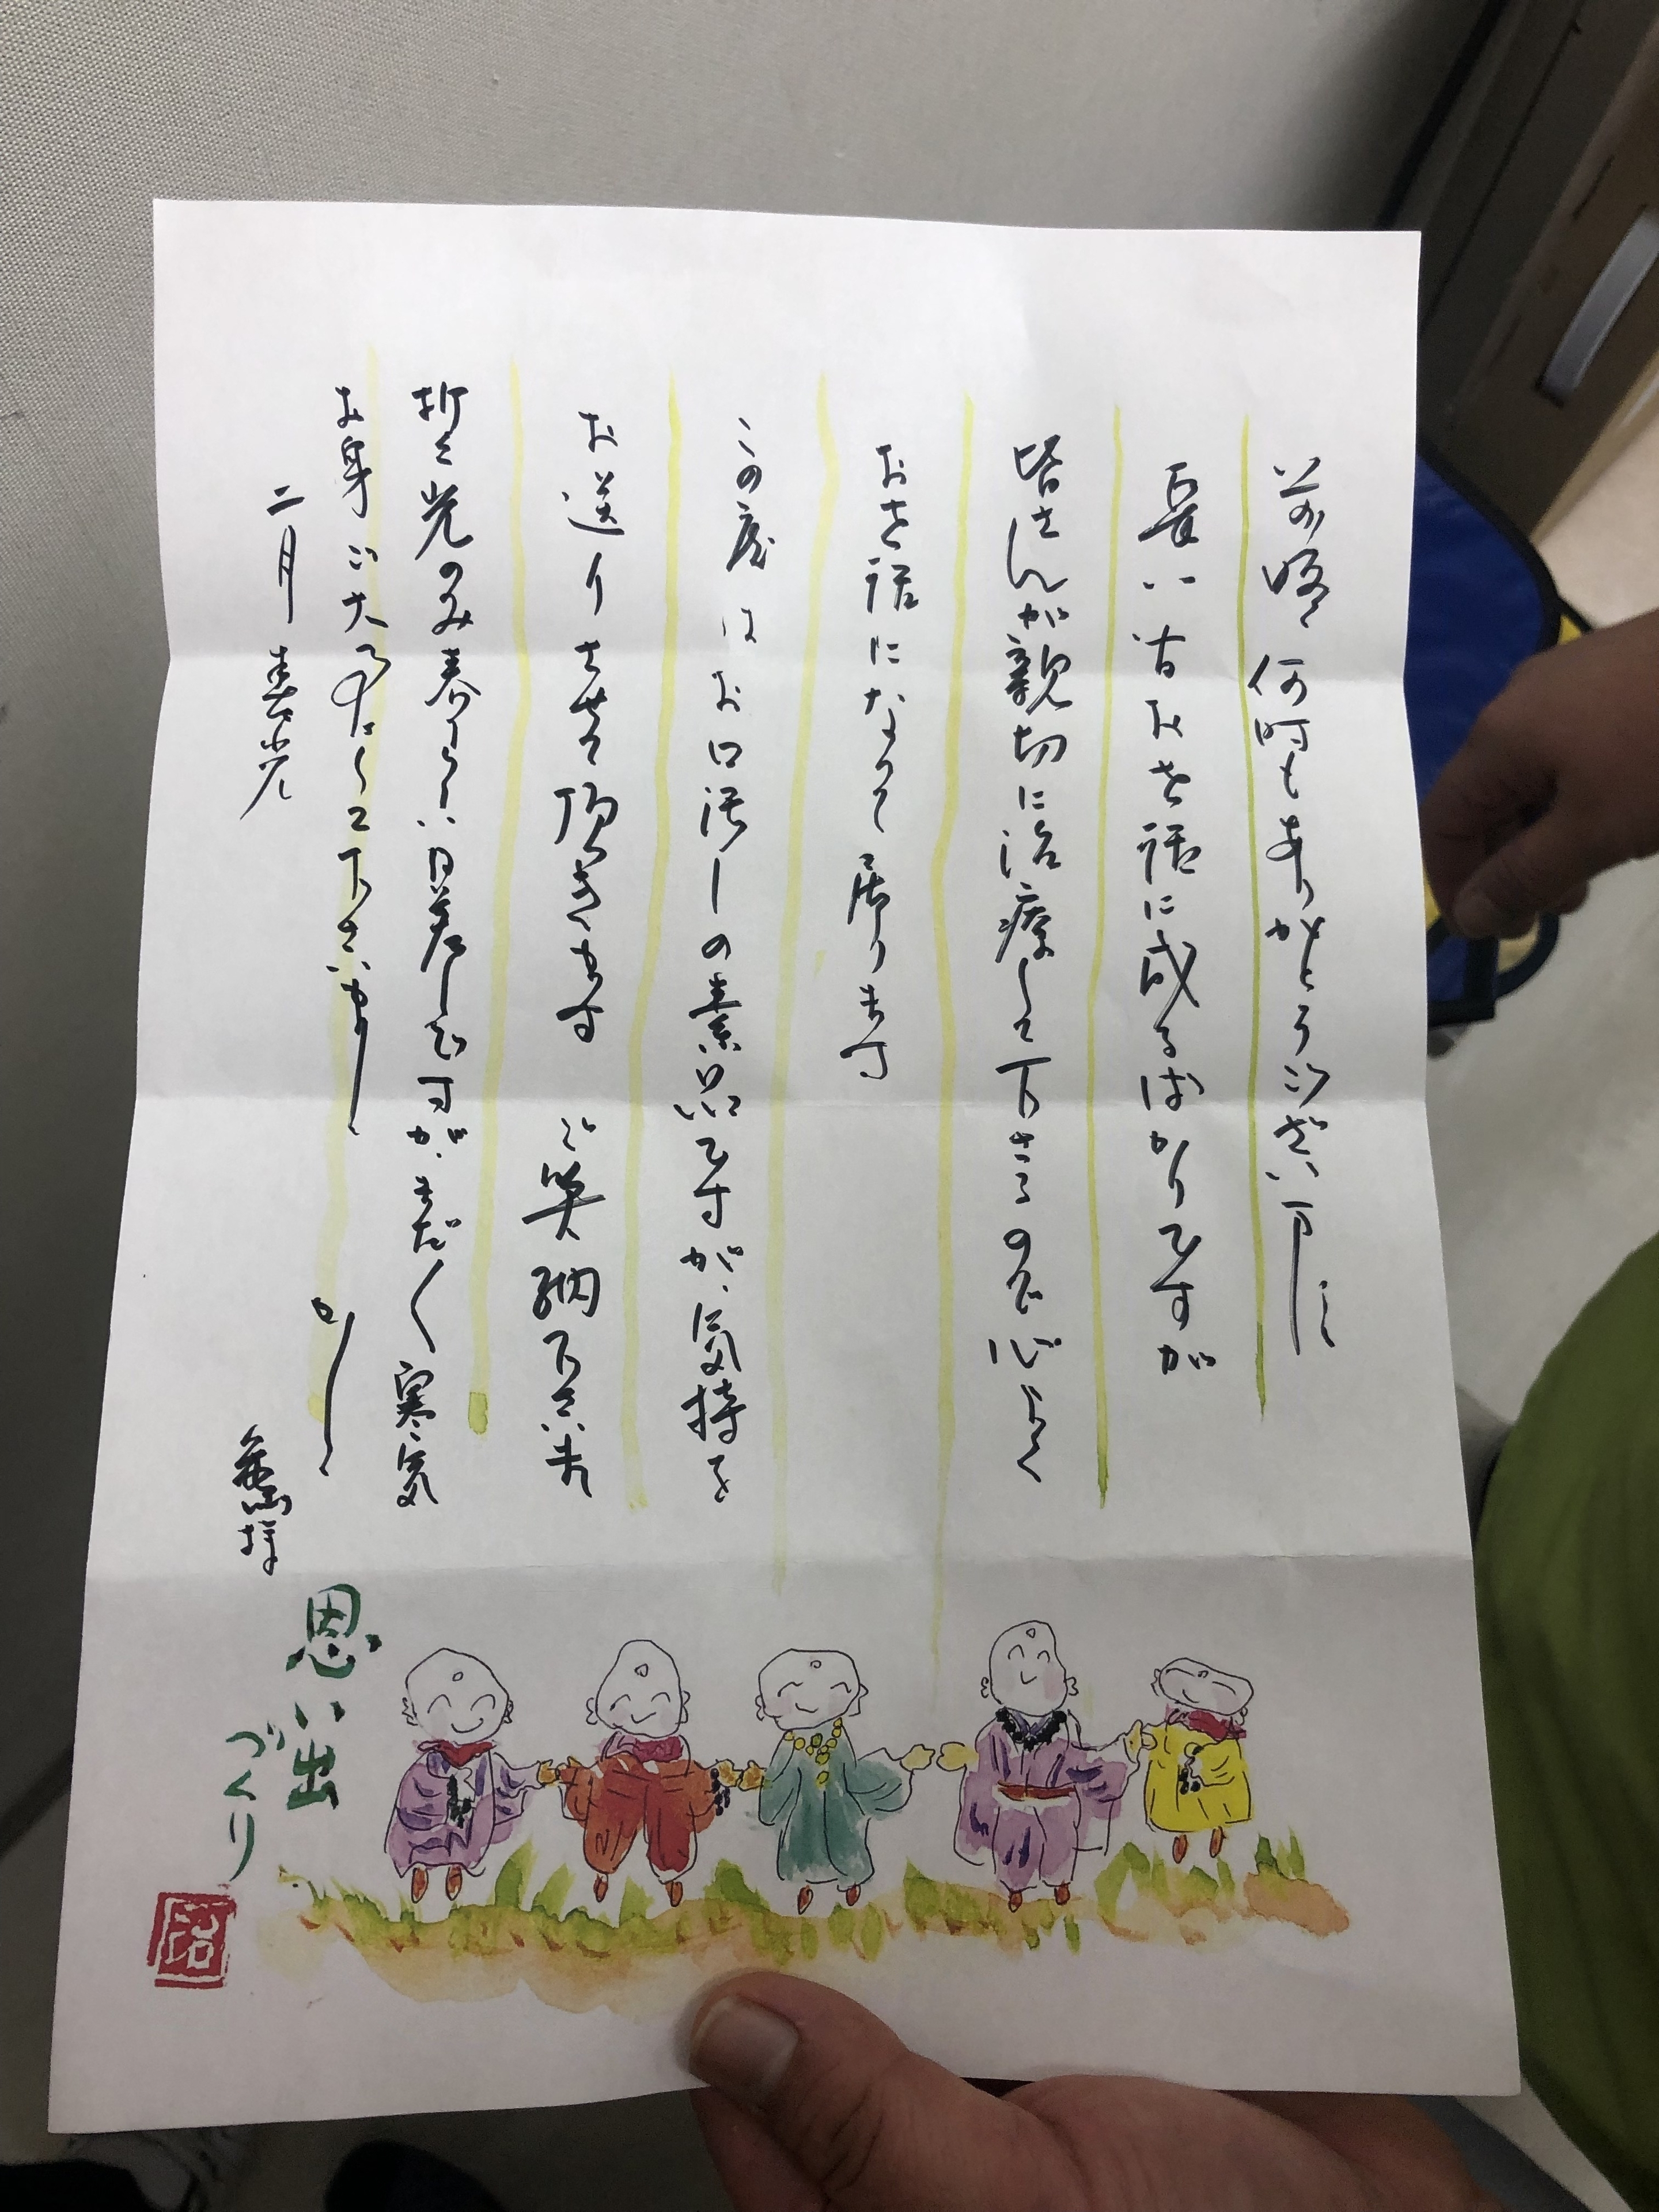 前略 何時もありがとうございます
長い方お世話に成るばかりですが
皆さんが親切に治療して下さるので心よく
お世話になって居ります
この度はお口汚しの素品ですが、気持を
お送りさせて頂きます ご笑納下さいませ
光のみ春らしい日差しですが、まだ〱寒気
お身ご大事にして下さいませ
かしこ
二月
様
思い出
づくり